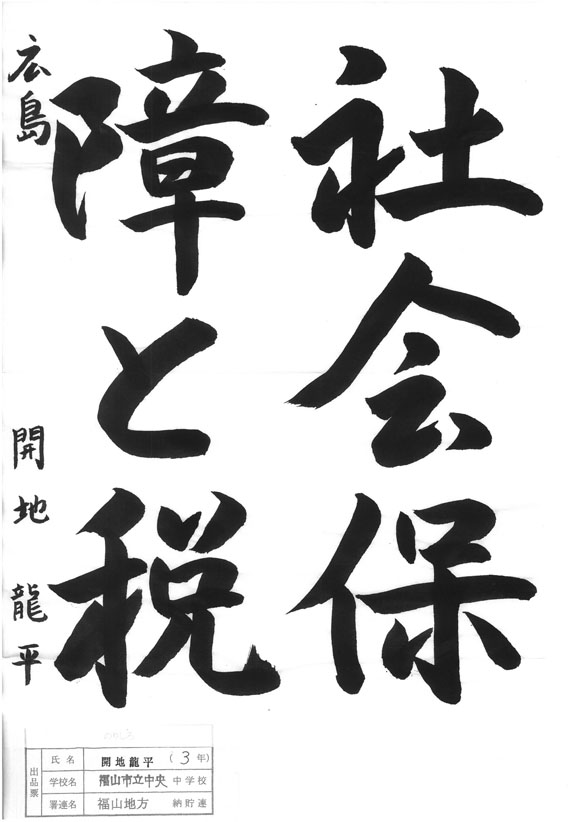 社会保
障と税
広島 開地龍平
出品票
氏名 開地龍平 (3年)
学校名 福山市立中央 中学校
署連名 福山地方 納貯連